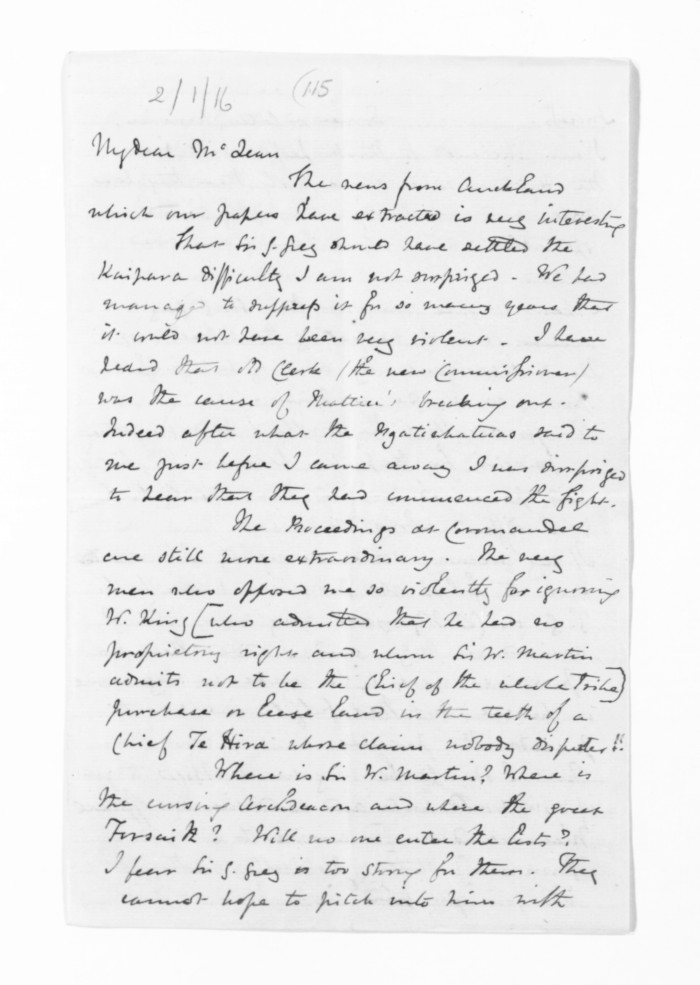 2/1/16 (115
My dear McLean
The news from Auckland
which our papers have extracted is very interesting
That Sir G. Grey should have settled the
Kaipara difficulty I am not surprized - We had
manage to suppress it for so many years that
it could not have been very violent - I have
heard that old Clerk (the new Commissioner)
was the cause of Matiu's breaking out -
Indeed after what the Ngatiwhatuas said to
me just before I came away I was surprized
to hear that they had commenced the fight.
The Proceedings at Coromandel
are still more extraordinary. The very
men who opposed me so violently for ignoring
W. King [who admitted that he had no
proprietory rights and whom Sir W. Martin
admits not to be the Chief of the whole Tribe]
purchase or lease land in the teeth of a
Chief Te Hira whose claim nobody disputes!!
Where is Sir W. Martin? Where is
the cursing Archdeacon and where the great
Forsaith? Will no one enter the lists?
I fear Sir G. Grey is too strong for them. They
cannot hope to pitch into him with